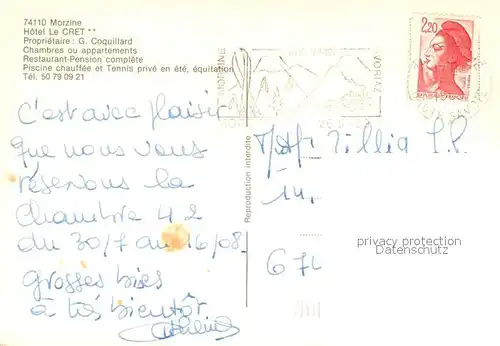 74110 Morzine
Hôtel Le CRET **
Propriétaire : G. Coquillard
Chambres ou appartements
Restaurant-Pension complète
Piscine chauffée et Tennis privé en été, équitation
Tél. 50 79 09 21
2,20
MORZINE
AVORIAZ
c'est avec plaisir
que nous vous
réservons la
chambre 42
du 30/7 au 16/08.
grosses bises
à très bientôt
Reproduction interdite
14.
674
privacy protection
Datenschutz